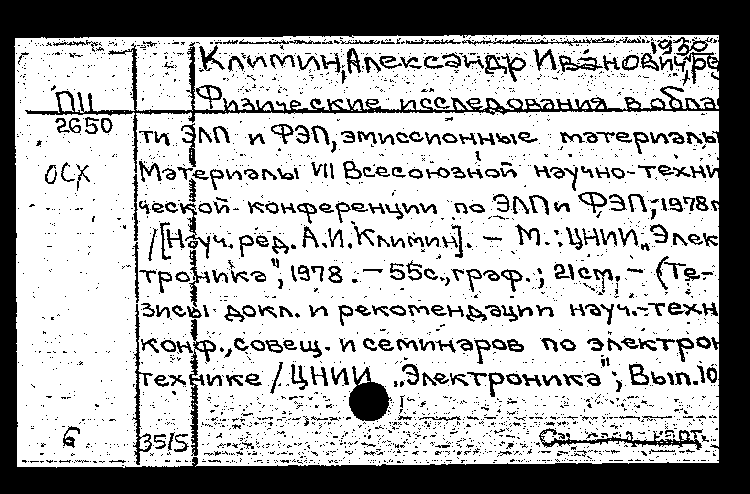 1930
Климин, Александр Иванович, ре
П11
Физические исследования в облас
2650
ти ЭЛП и ФЭП, эмиссионные материалы
ОСХ
Материалы VII Всесоюзной научно-техни
ческой конференции по ЭЛП и ФЭП, 1978г
/[Науч. ред. А.И.Климин]. — М.: ЦНИИ „Элек
троника", 1978. — 55с., граф.; 21см. — (Те-
зисы докл. и рекомендации науч.-техн
конф., совещ. и семинаров по электрон
технике / ЦНИИ „Электроника"; Вып. 10
Б 35/5